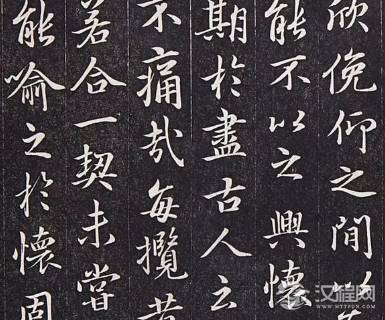 欣俛仰之間以
能不以之興懷
期於盡古人云
不痛哉每攬昔
若合一契未嘗
能喻之於懷固
汉程网
HTTPCN.COM